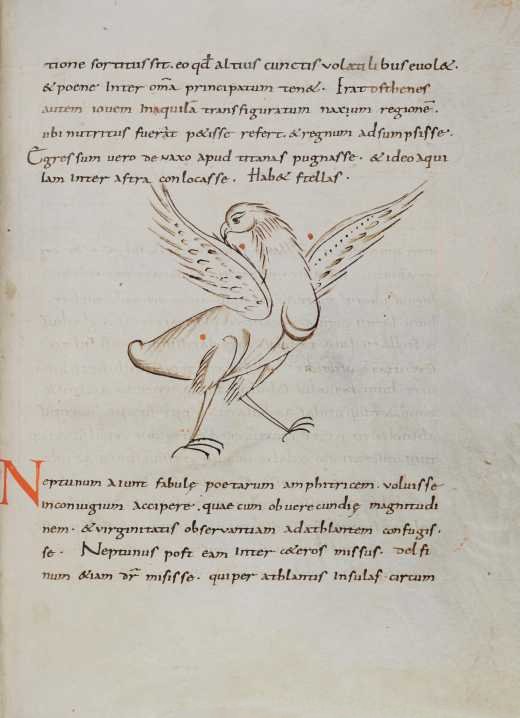 tione sortitus sit. eo qđ altius cunctis volatilibus evol&.
& poene inter om̄a principatum ten&. Eratosthenes
autem iovem inaquilā transfiguratum naxium regionē.
ubi nutritus fuerat p&isse refert. & regnum adsumpsisse.
Egressum vero de naxo apud titanas pugnasse. & ideo aqui
lam inter astra conlocasse. Hab& stellas.
Neptunum aiunt fabulę poetarum amphitricem. voluisse
inconiugium accipere. quae cum ob verecundię magnitudi
nem. & virginitatis observantiam adathlantem confugis
se. Neptunus post eam inter c&eros missus. delfi
num &iam dr̄ misisse. qui per athlantis insulas circum